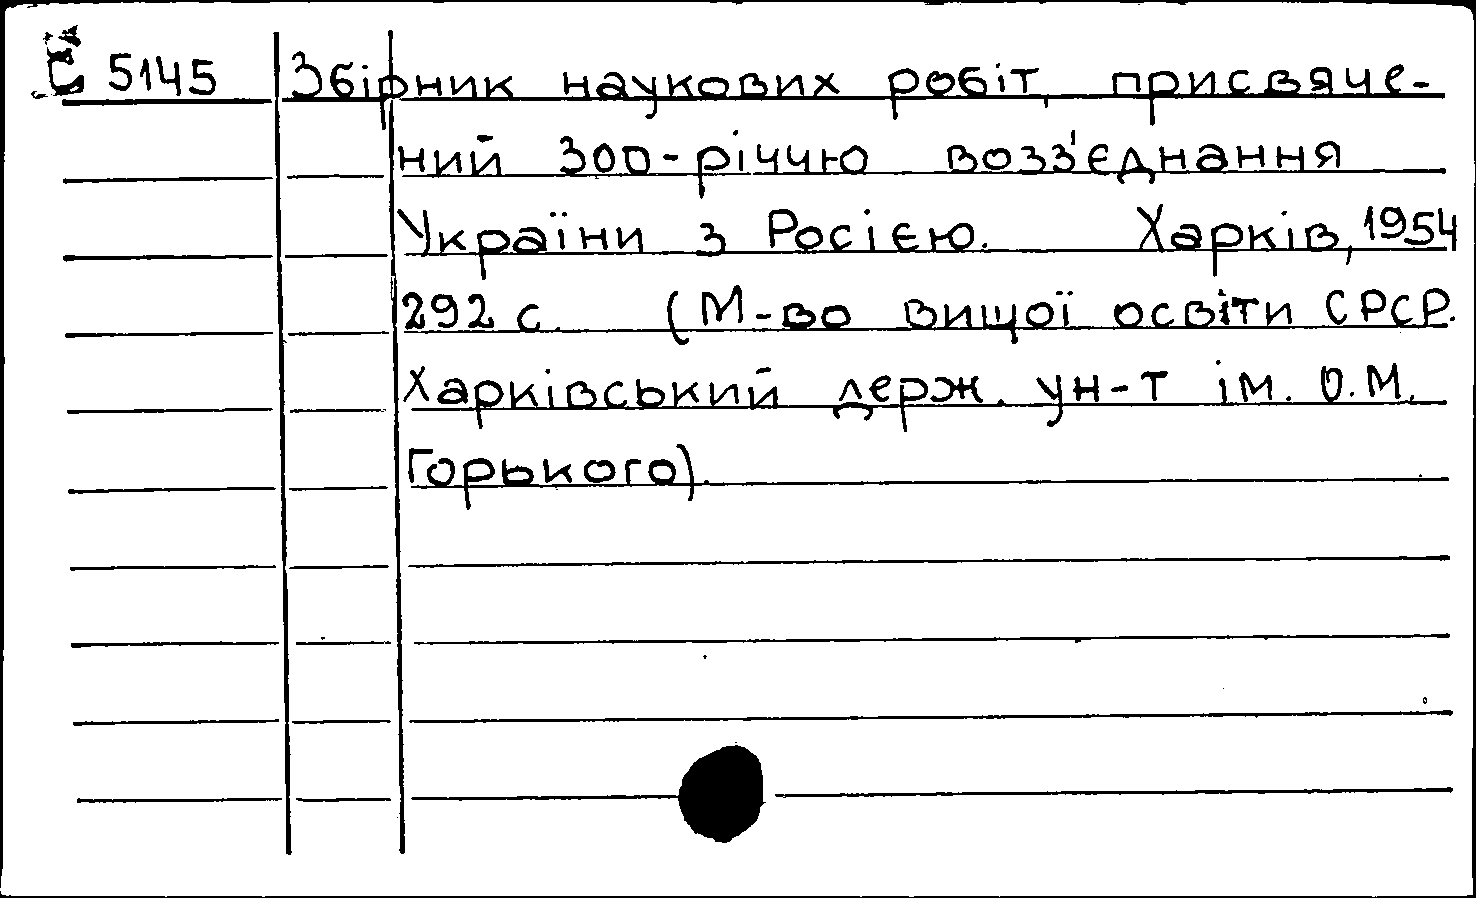 С 5145 Збірник наукових робіт, присвяче-
ний 300-річчю возз'єднання
України з Росією. Харків, 1954
292 с. (М-во вищої освіти СРСР.
Харківський держ. ун-т ім. О.М.
Горького).